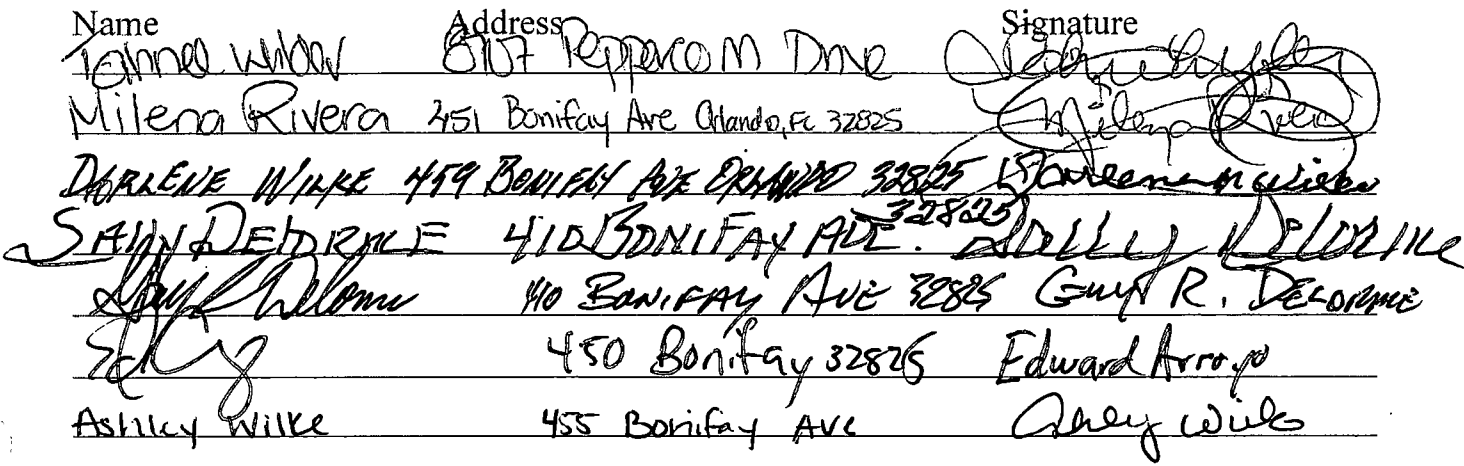 Name Address Signature
Drive
Milena Rivera 451 Bonifay Ave Orlando, FL 32825 Milena Rivera
DARLENE WILKE 459 BONIFAY AVE ORLANDO 32825 Darlene M Wilke
SALLY DELORME 410 BONIFAY AVE. 32825 Sally Delorme
Delorme 410 BONIFAY AVE 32825 Guy R. DELORME
Ed 450 Bonifay 32825 Edward Arroyo
Ashley Wilke 455 Bonifay Ave Ashley Wilke